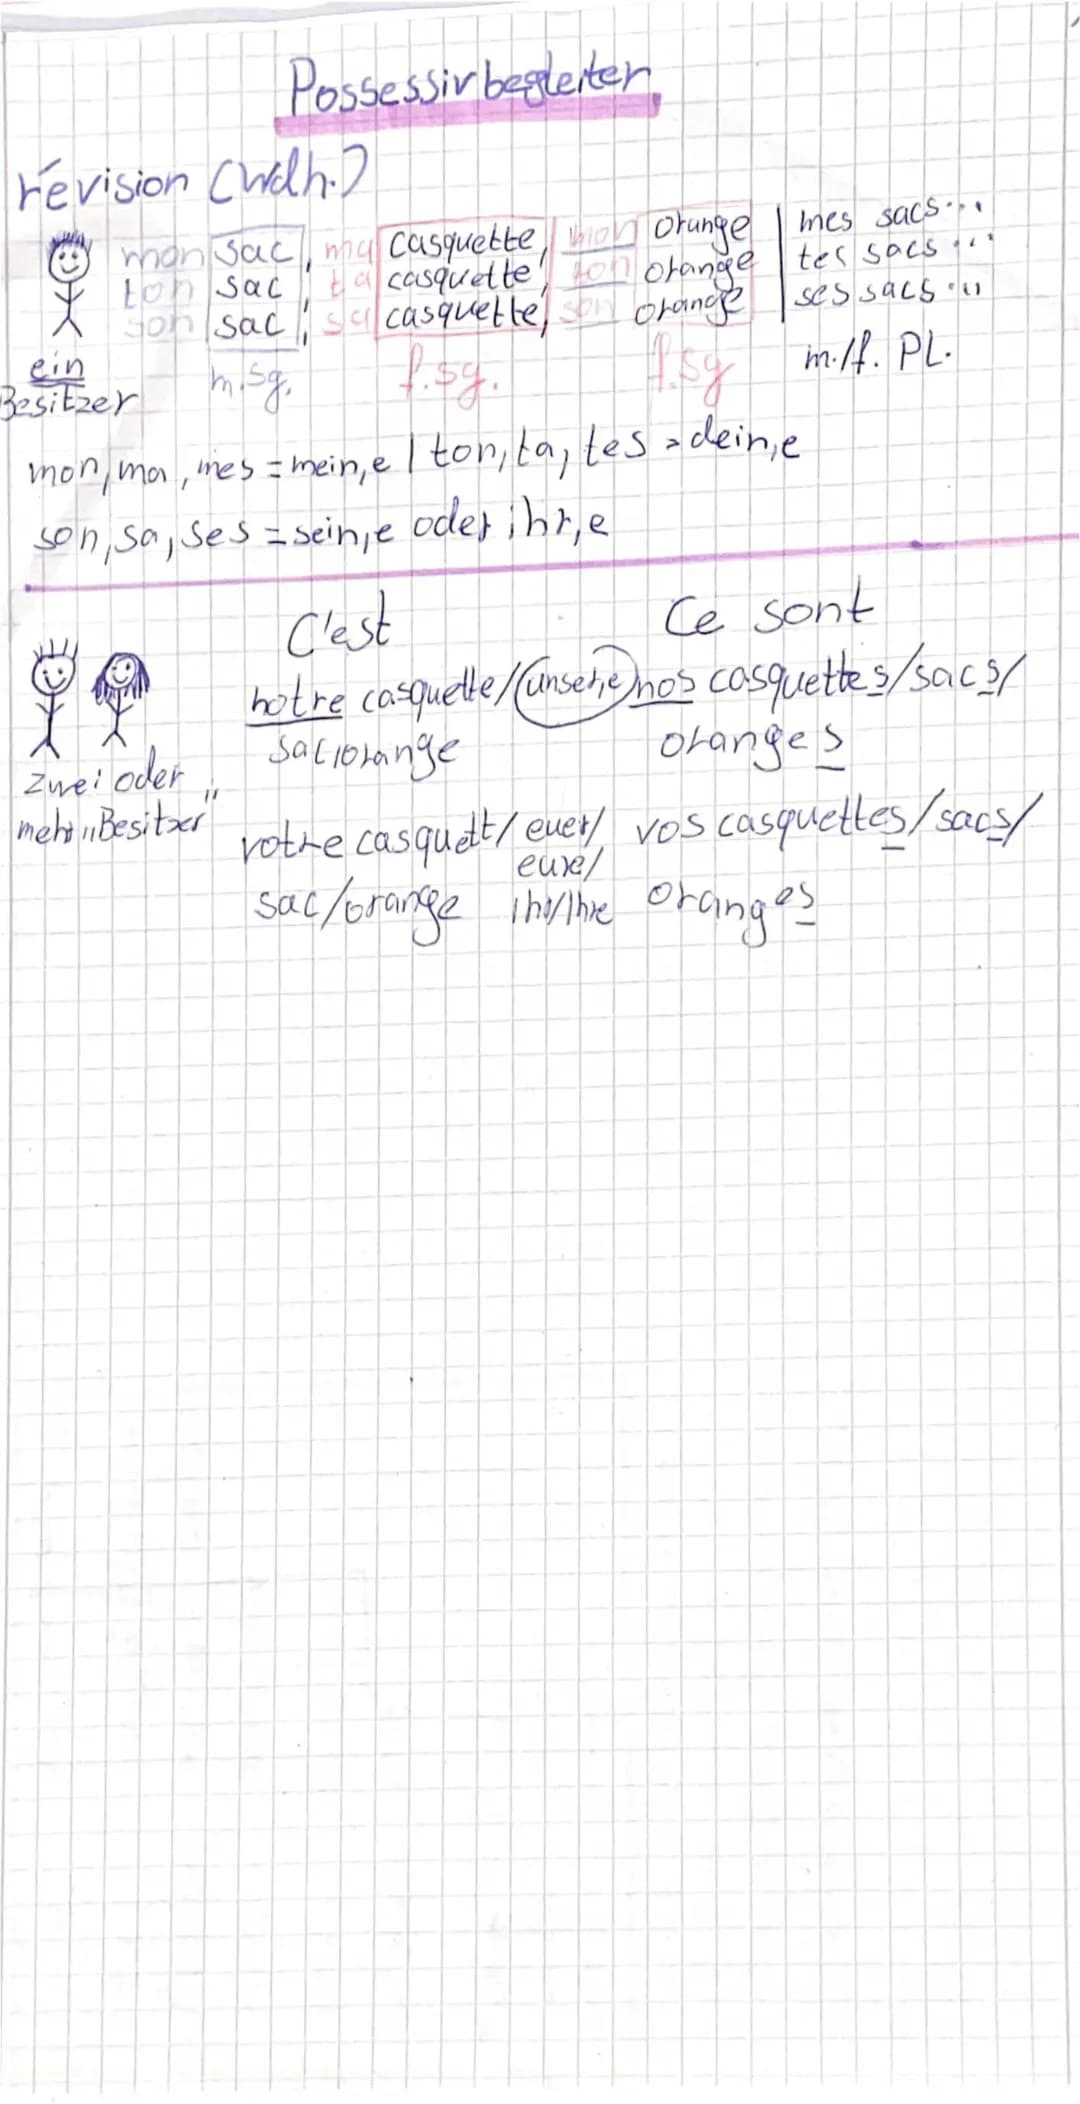 Possessivbegleiter
révision (Wdh.)
mon sac, ma casquette, mon orange | mes sacs...
ton sac, ta casquette, ton orange | tes sacs...
son sac, sa casquette, son orange | ses sacs...
ein m.sg. f.sg. f.sg m./f. PL.
Besitzer
mon, ma, mes = mein,e | ton, ta, tes = dein,e
son, sa, ses = sein,e oder ihr,e
C'est Ce sont
notre casquette/ unser,e nos casquettes/sacs/
sac/orange oranges
zwei oder
mehr "Besitzer"
votre casquett/ euer/ vos casquettes/sacs/
eure/
sac/orange Ihr/Ihre oranges